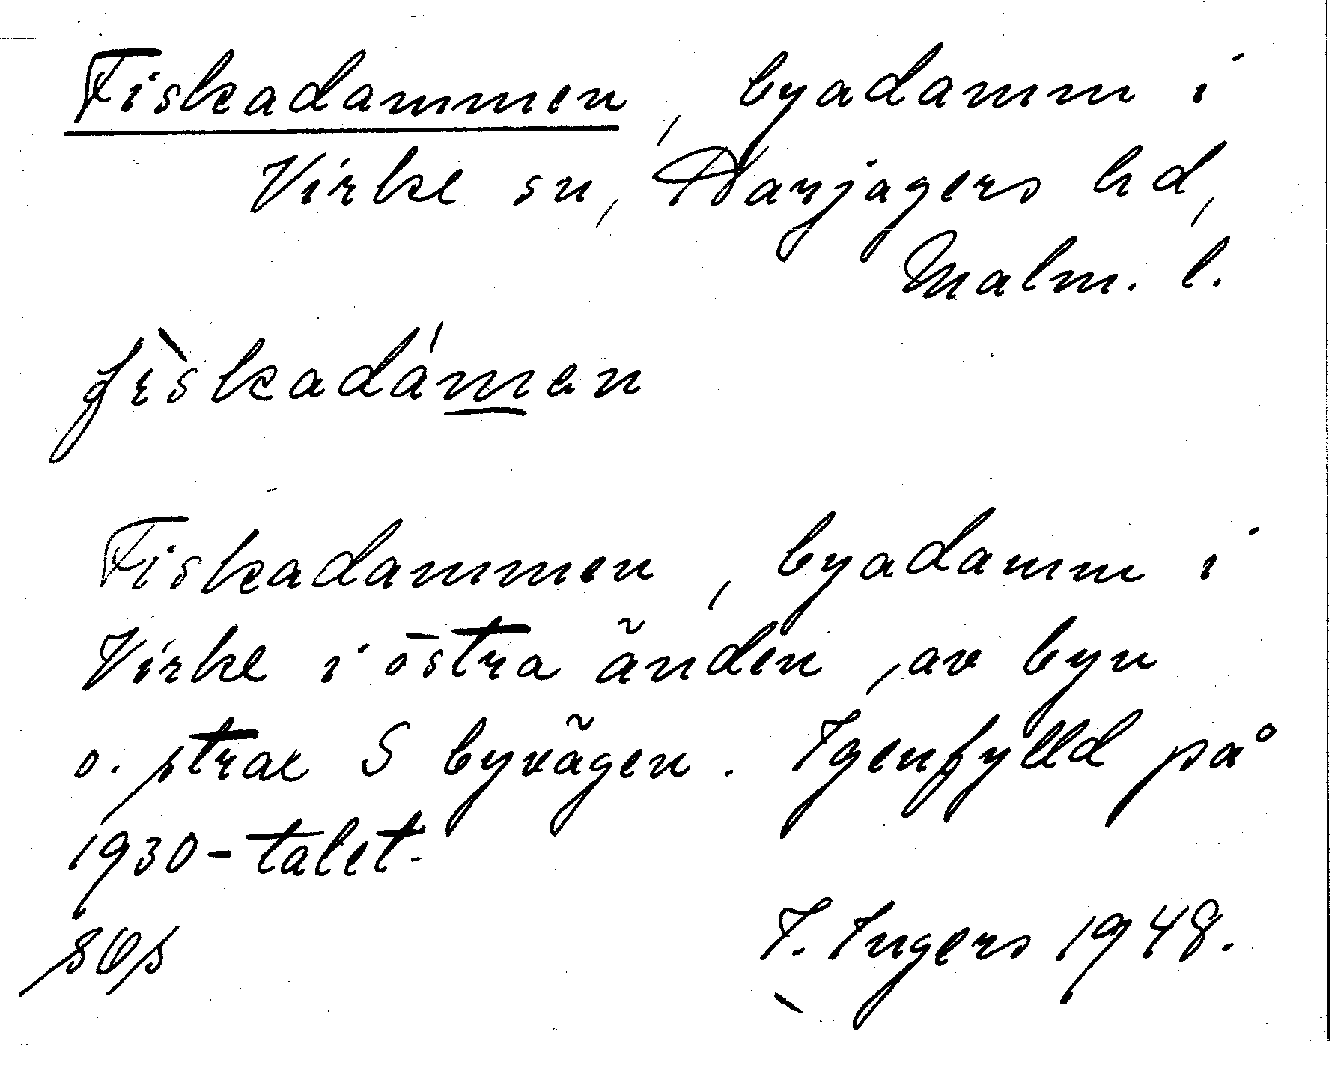 Fiskadammen, byadamm i
Virke sn, Harjagers hd,
Malm. l.
fìskadámen
Fiskadammen, byadamm i
Virke i östra änden av byn
o. strax S byvägen. Igenfylld på
1930-talet.
I. Ingers 1948.